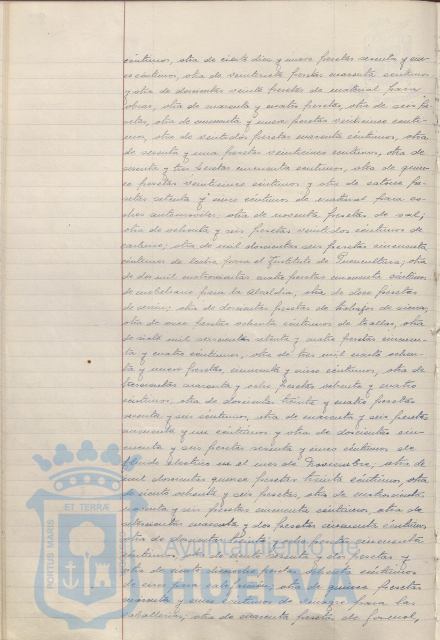 céntimos, otra de ciento diez y nueve pesetas
céntimos, otra de veintisiete pesetas cuarenta céntimos
y otra de doscientas veinte pesetas de material para
obras, otra de cuarenta y cuatro pesetas, otra de seis pe-
setas, otra de cincuenta y nueve pesetas veinticinco cénti-
mos, otra de veintidós pesetas cuarenta céntimos, otra
de sesenta y una pesetas veinticinco céntimos, otra de
sesenta y tres pesetas cincuenta céntimos, otra de quin-
ce pesetas veinticinco céntimos y otra de catorce pe-
setas setenta y cinco céntimos de material para co-
ches automóviles; otra de noventa pesetas de sal;
otra de ochenta y seis pesetas veintidós céntimos de
carburo; otra de mil doscientas seis pesetas cincuenta
céntimos de leche para el Instituto de Puericultura; otra
de dos mil cuatrocientas cuatro pesetas cincuenta céntimos
de mobiliario para la Alcaldía, otra de doce pesetas
de; otra de doscientas pesetas de trabajos de,
otra de once pesetas ochenta céntimos de, otra
de mil setenta y cuatro pesetas cincuen-
ta y cuatro céntimos, otra de tres mil ciento ochen-
ta y nueve pesetas cincuenta y cinco céntimos, otra de
trescientas cuarenta y ocho pesetas ochenta y cuatro
céntimos, otra de doscientas treinta y cuatro pesetas
céntimos, otra de cuarenta y seis pesetas
céntimos y otra de doscientas cin-
cuenta y seis pesetas sesenta y cinco céntimos de
fluido eléctrico en el mes de Noviembre; otra de
mil doscientas quince pesetas treinta céntimos, otra
de ciento ochenta y seis pesetas, otra de
y seis pesetas cincuenta céntimos, otra de
cuarenta y dos pesetas cincuenta céntimos
otra de treinta y ocho pesetas cincuenta
pesetas y
otra de ciento pesetas ochenta céntimos
de; otra de quince pesetas
cuarenta y cinco céntimos de para las
caballerías; otra de cuarenta pesetas de jornal,
PORTUS MARIS
ET TERRÆ
Ayuntamiento de
HUELVA